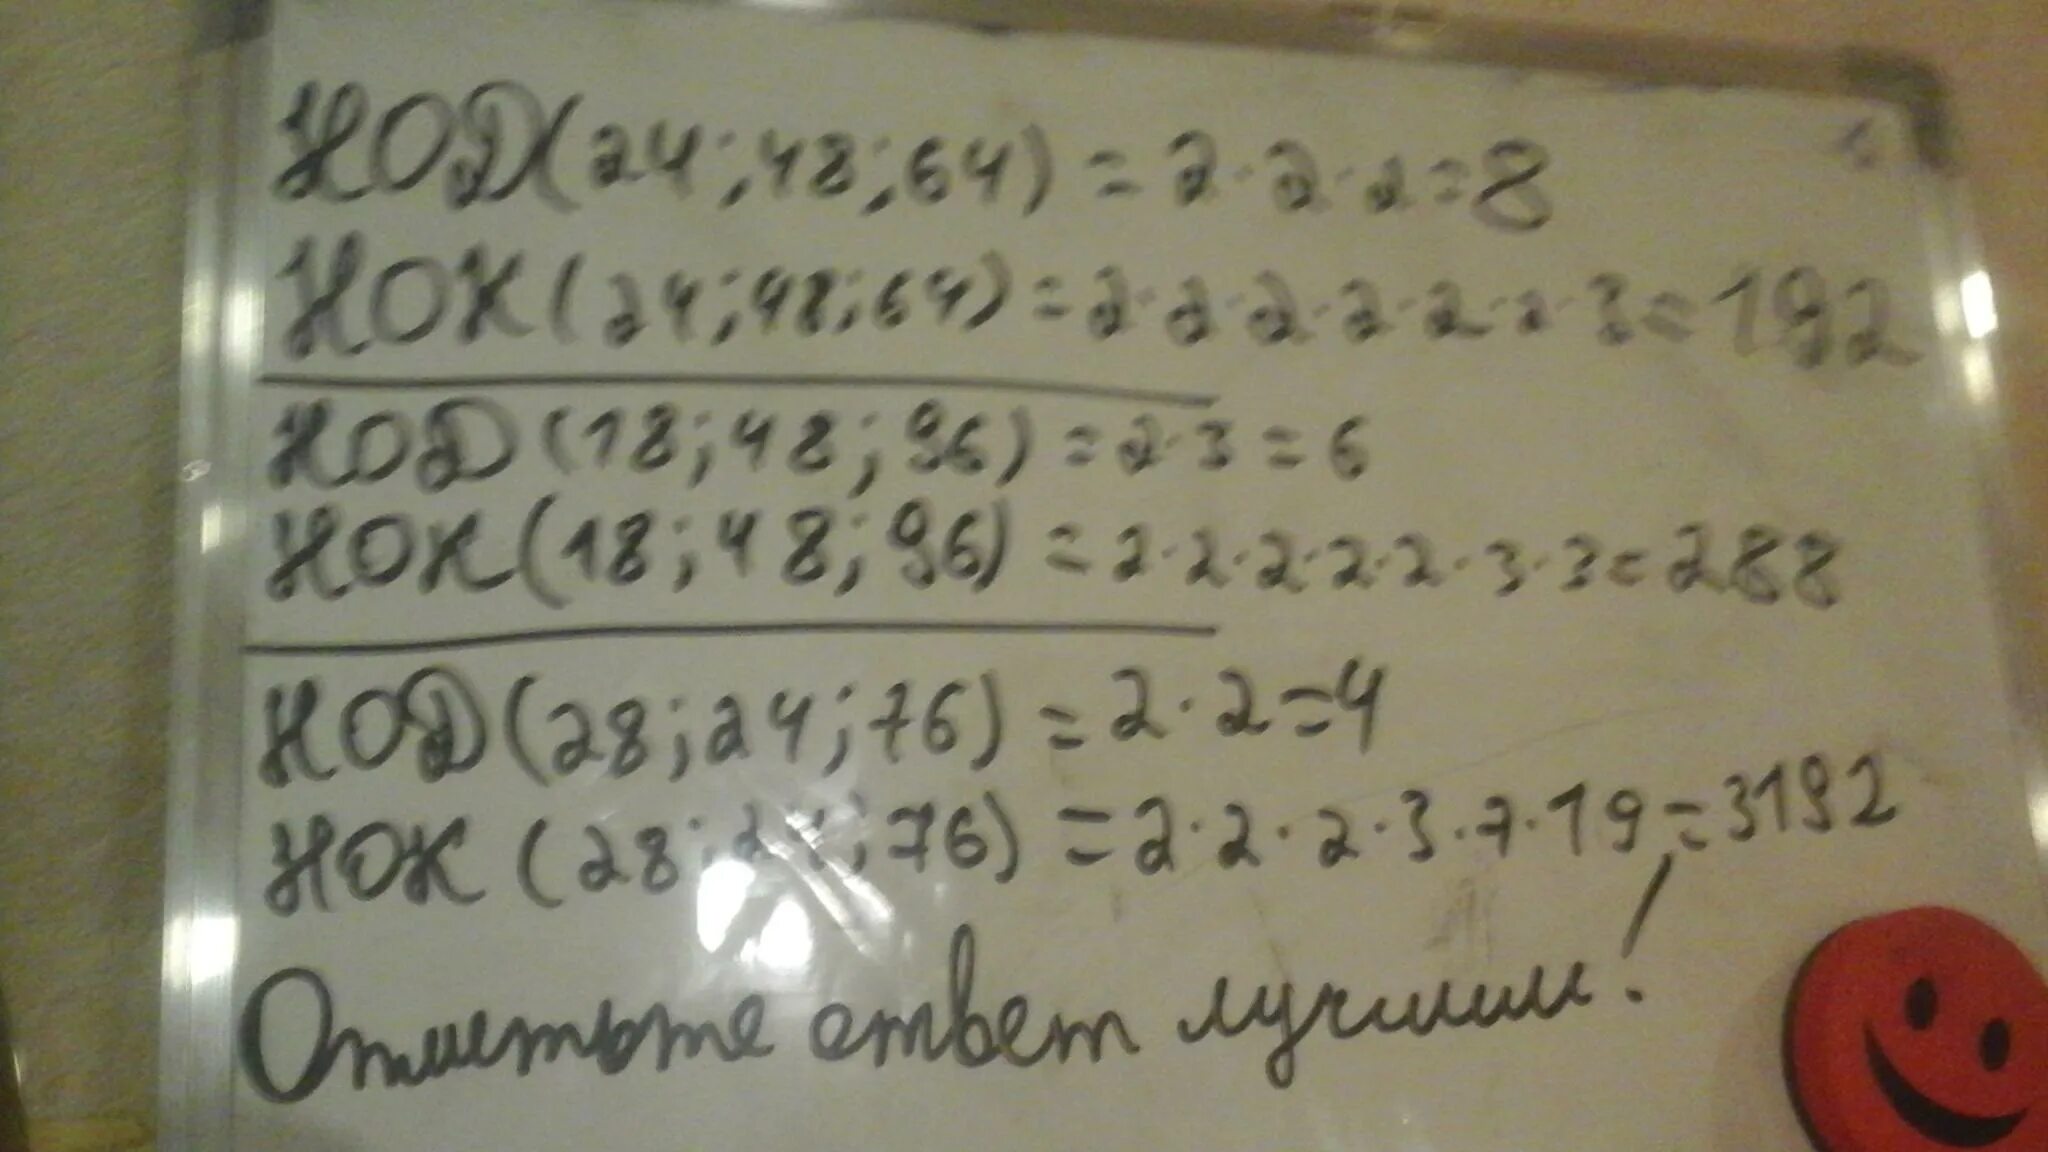 НОД(24;48;64) = 2·2·2=8
НОК(24;48;64) = 2·2·2·2·2·2·3=192
НОД(18;48;96) = 2·3=6
НОК(18;48;96) = 2·2·2·2·2·3·3=288
НОД(28;24;76) = 2·2=4
НОК(28;24;76) = 2·2·2·3·7·19=3192
Отметьте ответ лучшим!